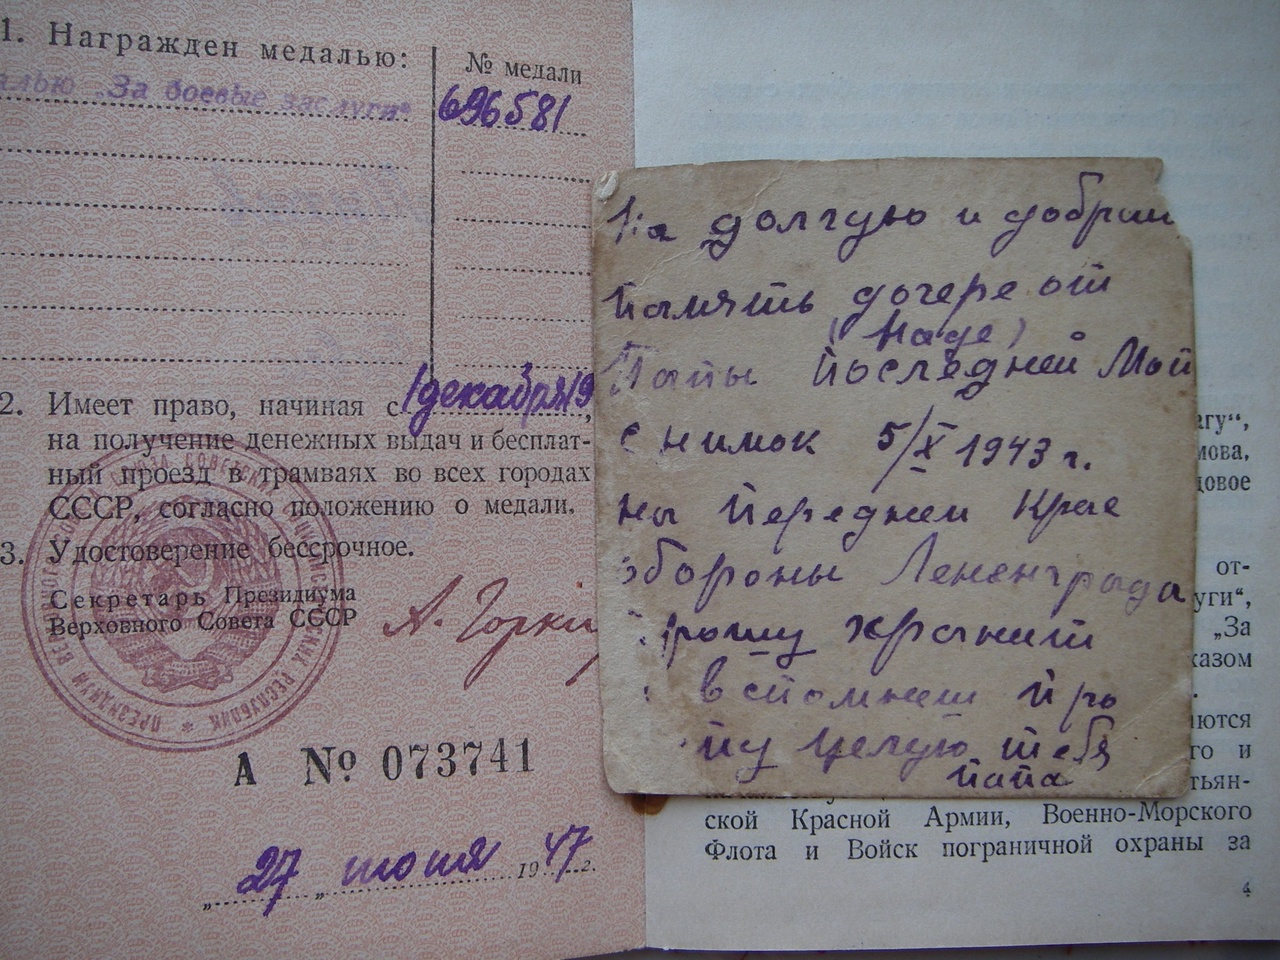 1. Награжден медалью:
№ медали
„За боевые заслуги“
696581
2. Имеет право, начиная с 1 декабря 19
на получение денежных выдач и бесплат-
ный проезд в трамваях во всех городах
СССР, согласно положению о медали.
3. Удостоверение бессрочное.
Секретарь Президиума
Верховного Совета СССР
А. Горки
А № 073741
„27 „ июня 1947 г.
На долгую и добрую
память дочере от
(Наде)
Папы последней Мой
снимок 5/X 1943 г.
на переднем Крае
обороны Лененграда
прошу хранит
вспомнеш про
целую тебя
папа
агу“,
мова,
довое
от-
уги“,
„За
казом
аются
го и
тьян-
ской Красной Армии, Военно-Морского
Флота и Войск пограничной охраны за
4